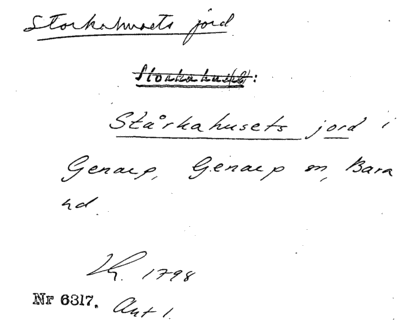 Storkahusets jord
Storkahuset:
Stårkahusets jord i
Genarp, Genarp sn, Bara
hd.
Lh. 1798
Nr 6317. Akt 1.